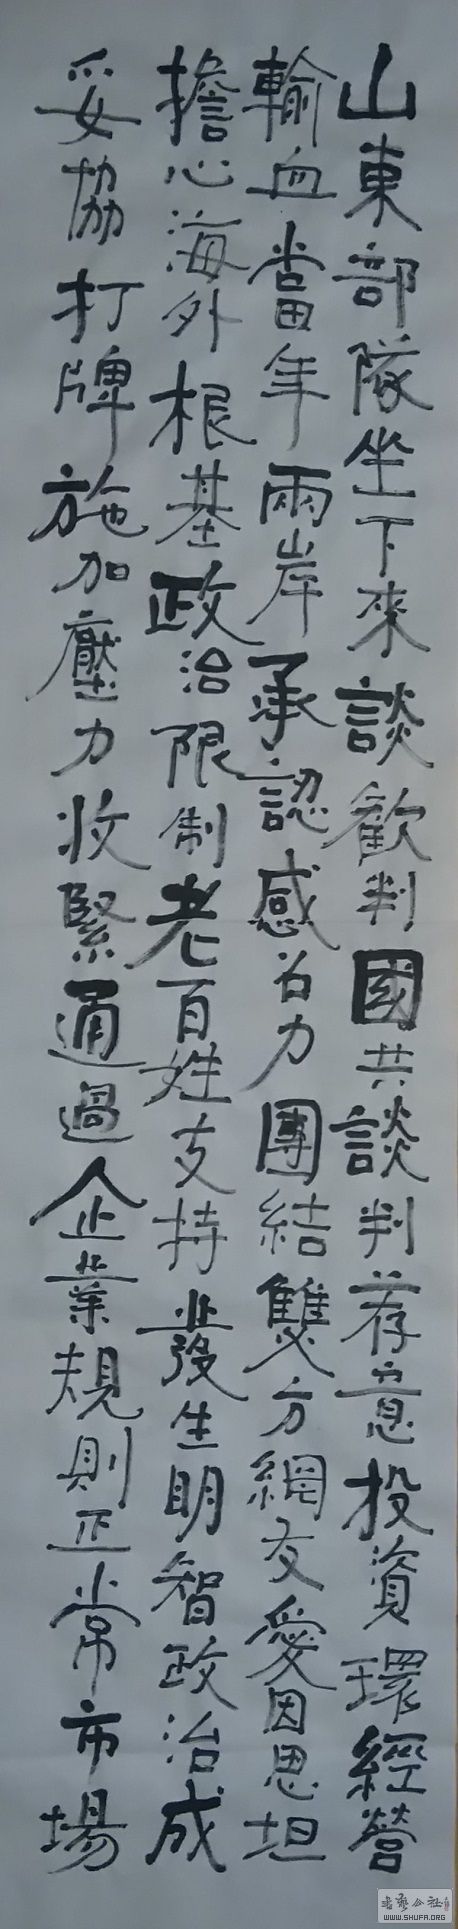 山東部隊坐下來談歡判國共談判荐意投資環經營
輸血當年兩岸承認感召力團結雙方網友愛因思坦
擔心海外根基政治限制老百姓支持發生明智政治成
妥協打牌施加壓力收緊通過企業規則正常市場
書藝公社
WWW.SHUFA.ORG